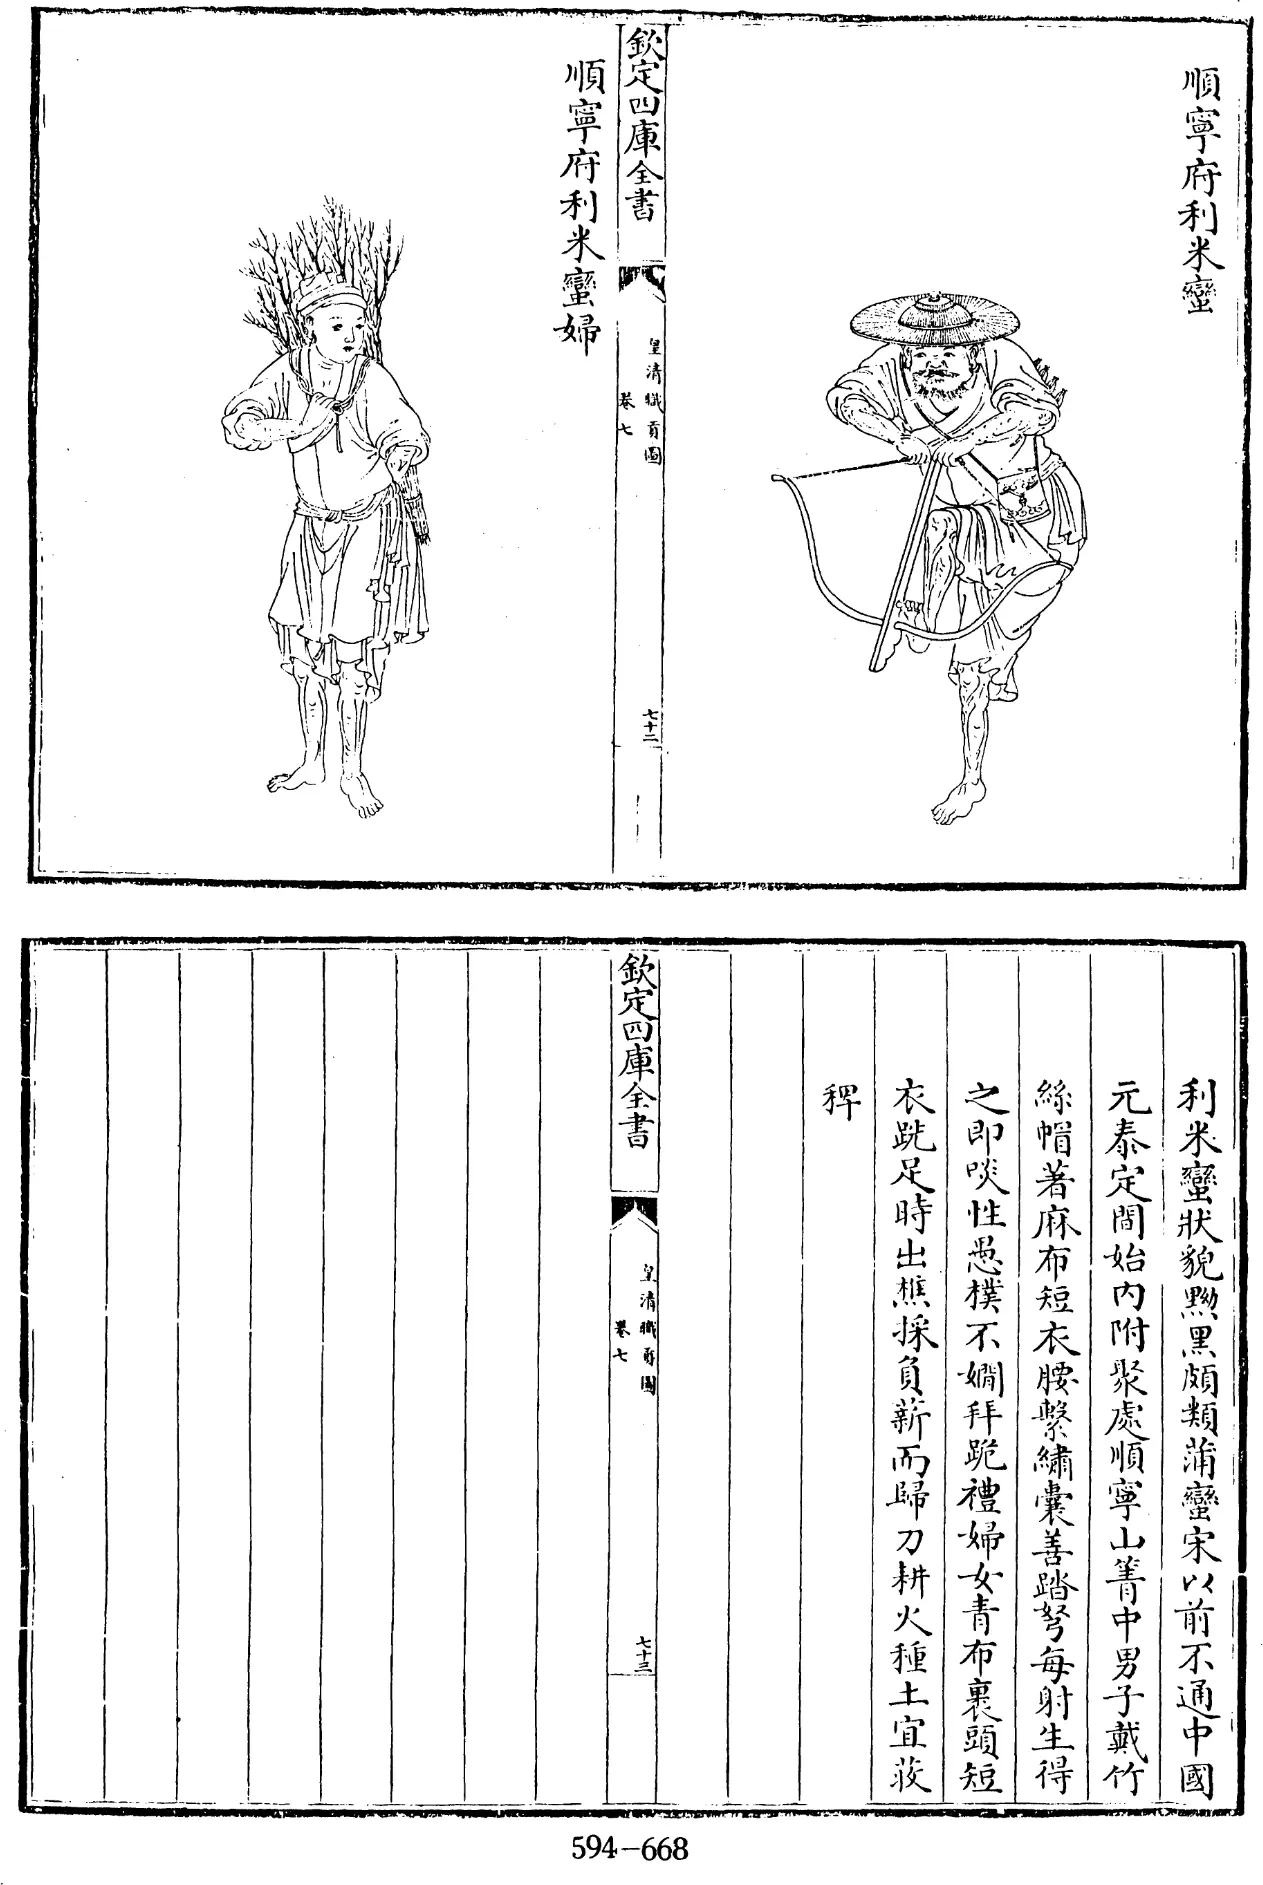 順寧府利米蠻
欽定四庫全書
皇清職貢圖
卷七
七十二
順寧府利米蠻婦
利米蠻狀貌黝黑頗類蒲蠻宋以前不通中國
元泰定間始内附聚處順寧山箐中男子戴竹
絲帽著麻布短衣腰繫繡囊善踏弩每射生得
之即啖性愚樸不嫺拜跪禮婦女青布裹頭短
衣跣足時出樵採負薪而歸刀耕火種土宜荍
稗
欽定四庫全書
皇清職貢圖
卷七
七十三
594-668